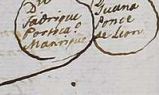 Dⁿ
Fadrique
Portua.º
Manrique
Juana
Ponce
de Leon